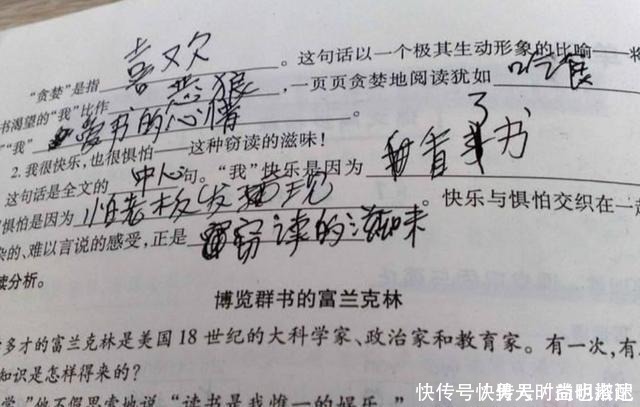 “贪婪”是指 喜欢 。这句话以一个极其生动形象的比喻——将
书渴望的“我”比作 恶狼 ,一页页贪婪地阅读犹如 吃食
了“我” 爱书的心情 。
2. 我很快乐,也很惧怕——这种窃读的滋味!
这句话是全文的 中心 句。“我”快乐是因为 看了书
惧怕是因为 怕老板发现 。快乐与惧怕交织在一起
杂的、难以言说的感受,正是 窃读的滋味
读分析。
博览群书的富兰克林
多才的富兰克林是美国 18 世纪的大科学家、政治家和教育家。有一次,有
知识是怎样得来的?
”他不假思索地说“读书是我惟一的娱乐。”
快传号